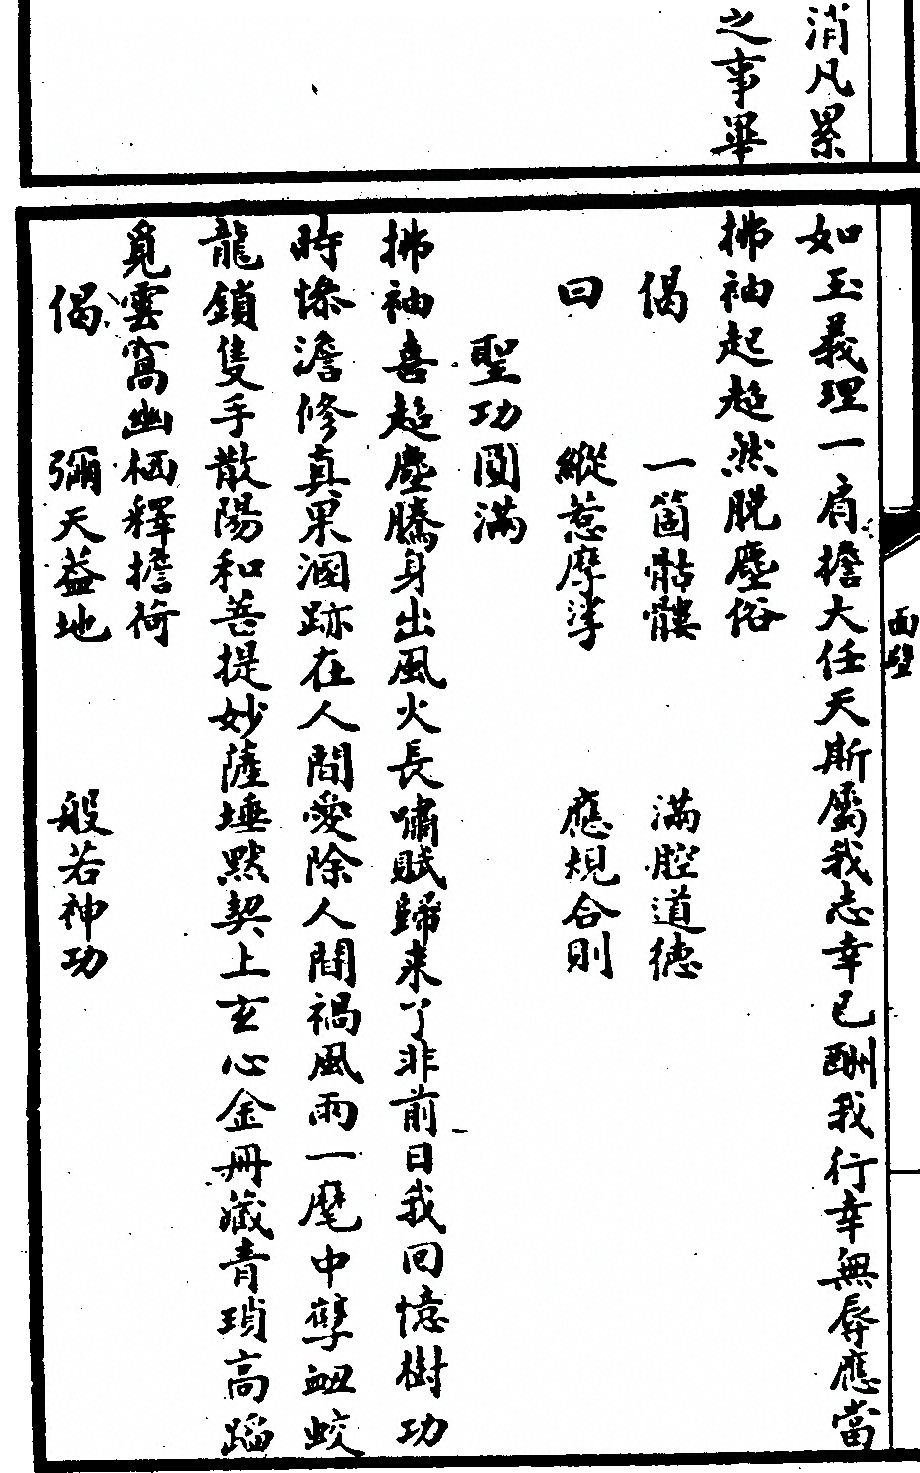 消凡累
之事畢
面壁
如玉義理一肩擔大任天斯屬我志幸已酬我行幸無辱應當
拂袖起超然脫塵俗
偈　一箇骷髏　滿腔道德
曰　縱惹摩挲　應規合則
聖功圓滿
拂袖喜超塵騰身出風火長嘯賦歸来了非前日我回憶樹功
時慘澹修真果溷跡在人間愛除人間禍風雨一麾中孽蛟
龍鎖隻手散陽和菩提妙薩埵默契上玄心金冊藏青瑣高蹈
覓雲窩幽栖釋擔荷
偈　彌天葢地　般若神功